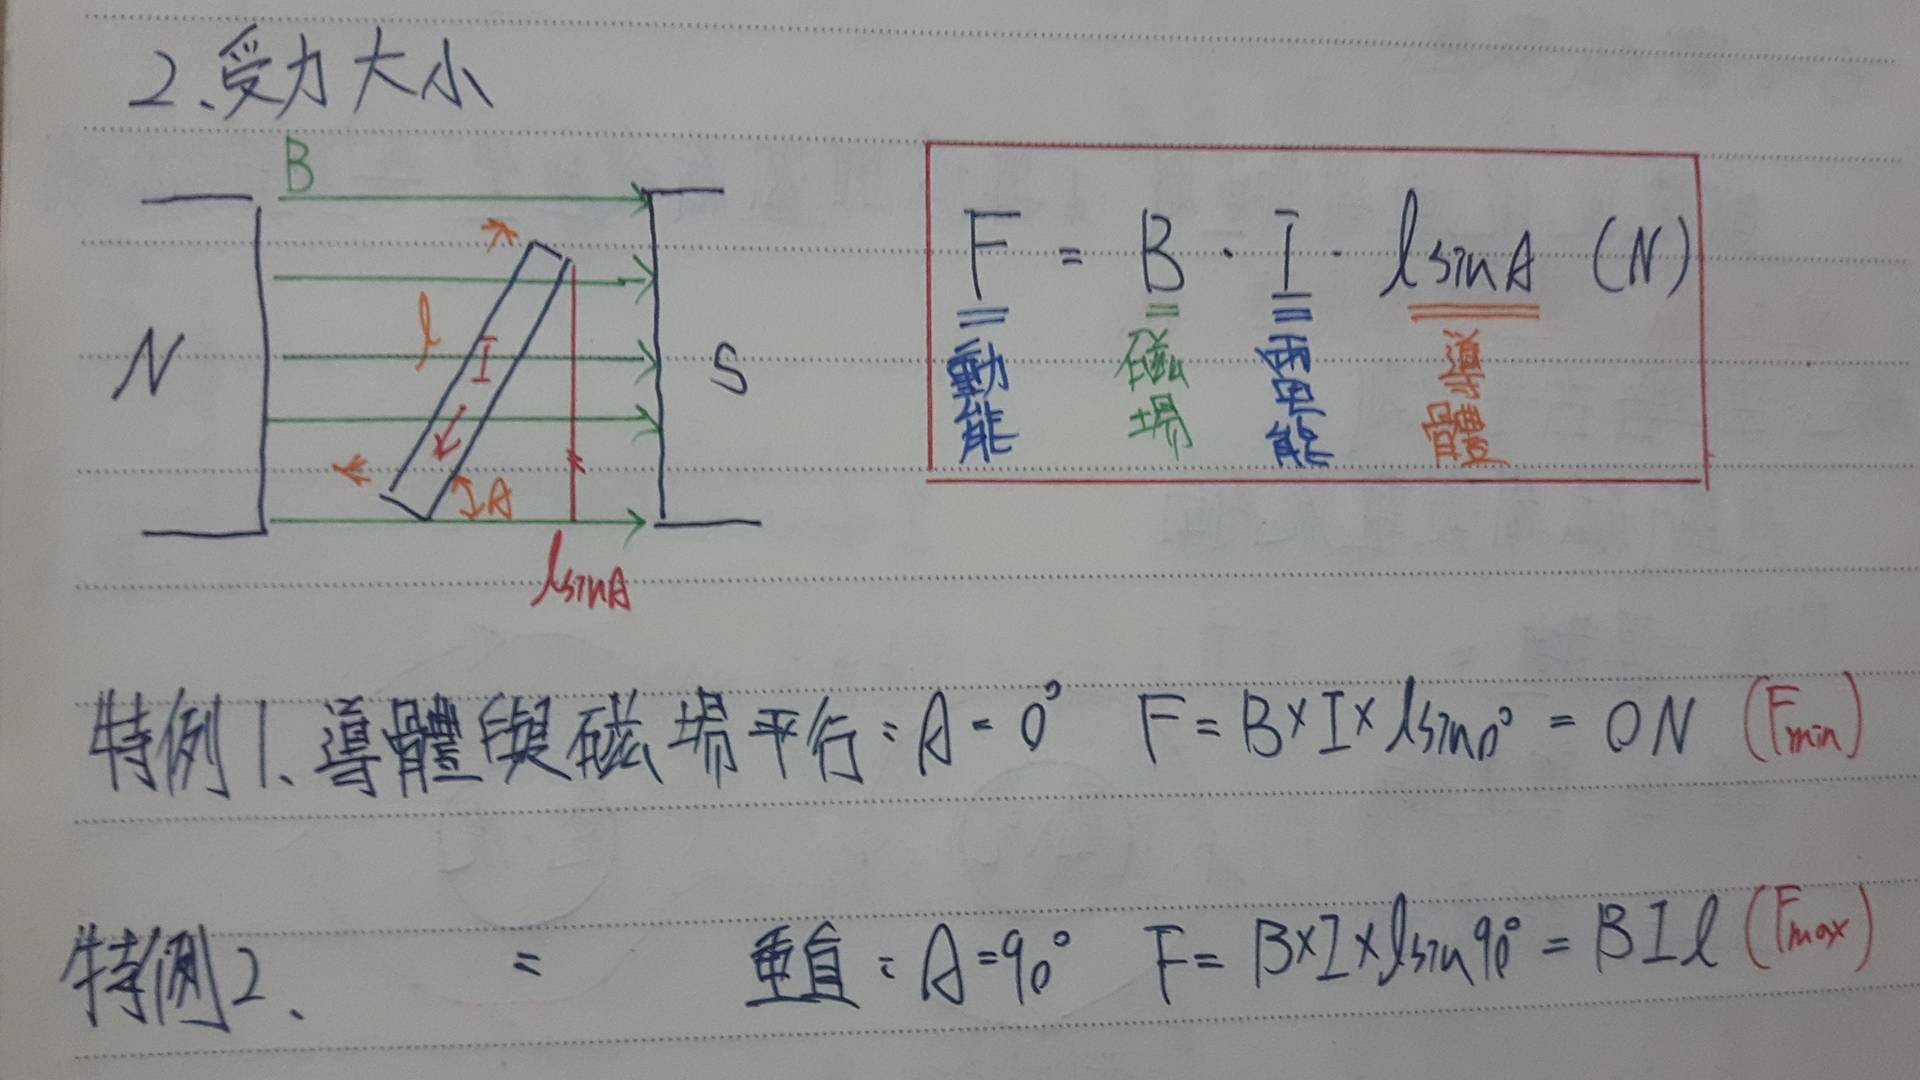 2、受力大小
B
N
l
I
A
S
lsinA
F = B · I · lsinA (N)
動能 磁場 電能 導體
特例1、導體與磁場平行：A = 0° F = B×I×lsin0° = 0N (Fmin)
特例2、 = 垂直：A = 90° F = B×I×lsin90° = BIl (Fmax)